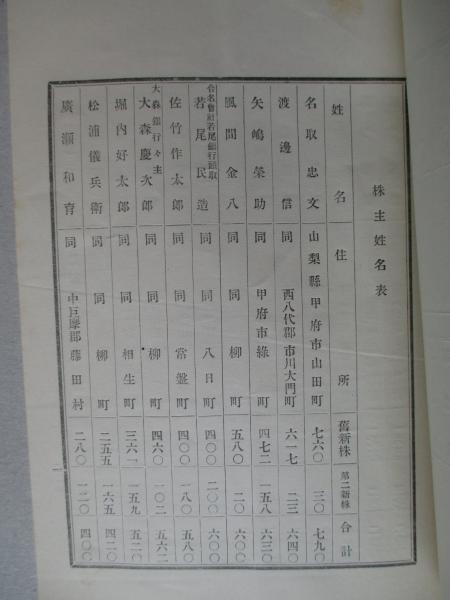 株主姓名表
姓名 住所 舊新株 第二新株 合計
名取忠文 山梨縣甲府市山田町 七六〇 三〇 七九〇
渡邊信 同 西八代郡市川大門町 六一七 二三 六四〇
矢嶋榮助 同 甲府市綠町 四七二 一五八 六三〇
風間金八 同 同 柳町 五八〇 二〇 六〇〇
合名會社若尾銀行頭取 若尾民造 同 同 八日町 四〇〇 二〇〇 六〇〇
佐竹作太郎 同 同 常盤町 四〇〇 一八〇 五八〇
大森銀行々主 大森慶次郎 同 同 柳町 四六〇 一〇二 五六二
堀内好太郎 同 同 相生町 三六一 一五九 五二〇
松浦儀兵衛 同 同 柳町 二五五 一六五 四二〇
廣瀬和育 同 中巨摩郡藤田村 二八〇 一二〇 四〇〇